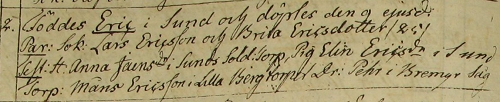 2. Föddes Eric i Sund och döptes den 9 ejusd:
Par: Sok: Lars Ericsson och Brita Ericsdotter
Test: H: Anna Jains i Sunds Sold: Torp, Pig Elin Ericsdr i Sund
Torp: Måns Ericsson i Lilla Bergtorpet Dr: Pehr i Bremyr